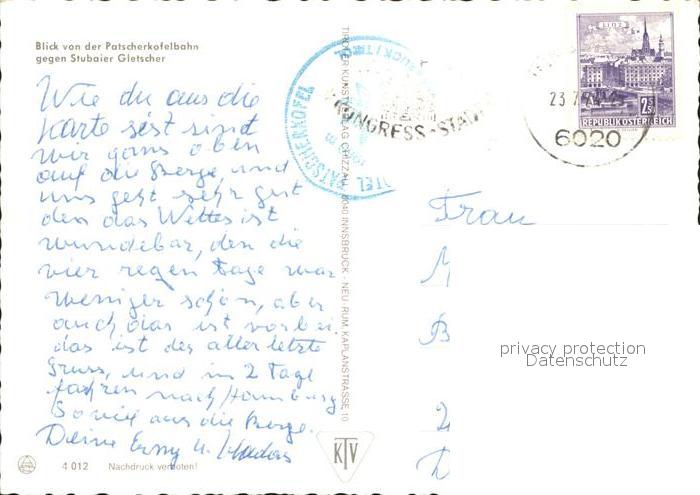 Blick von der Patscherkofelbahn
gegen Stubaier Gletscher
Wie du aus die
Karte sest sind
wir gans oben
auf die Berge, und
uns geht sehr gut
den das Wetter ist
wundebar, den die
vier regen tage war
weniger schön, aber
auch das ist vorbei.
das ist der allerletzte
Gruss, und in 2 Tage
fahren nach Homburg
Soviel aus die Berge.
Deine Erny u.
4 012 Nachdruck verboten!
TIROLER KUNSTVERLAG CHIZZALI, 6040 INNSBRUCK - NEU-RUM, KAPLANSTRASSE 10
KTV
PATSCHERHOFEL
KONGRESS-STADT
LINZ
23.7.
2.50
REPUBLIK ÖSTERREICH
6020
Frau
M
B
2
D
privacy protection
Datenschutz